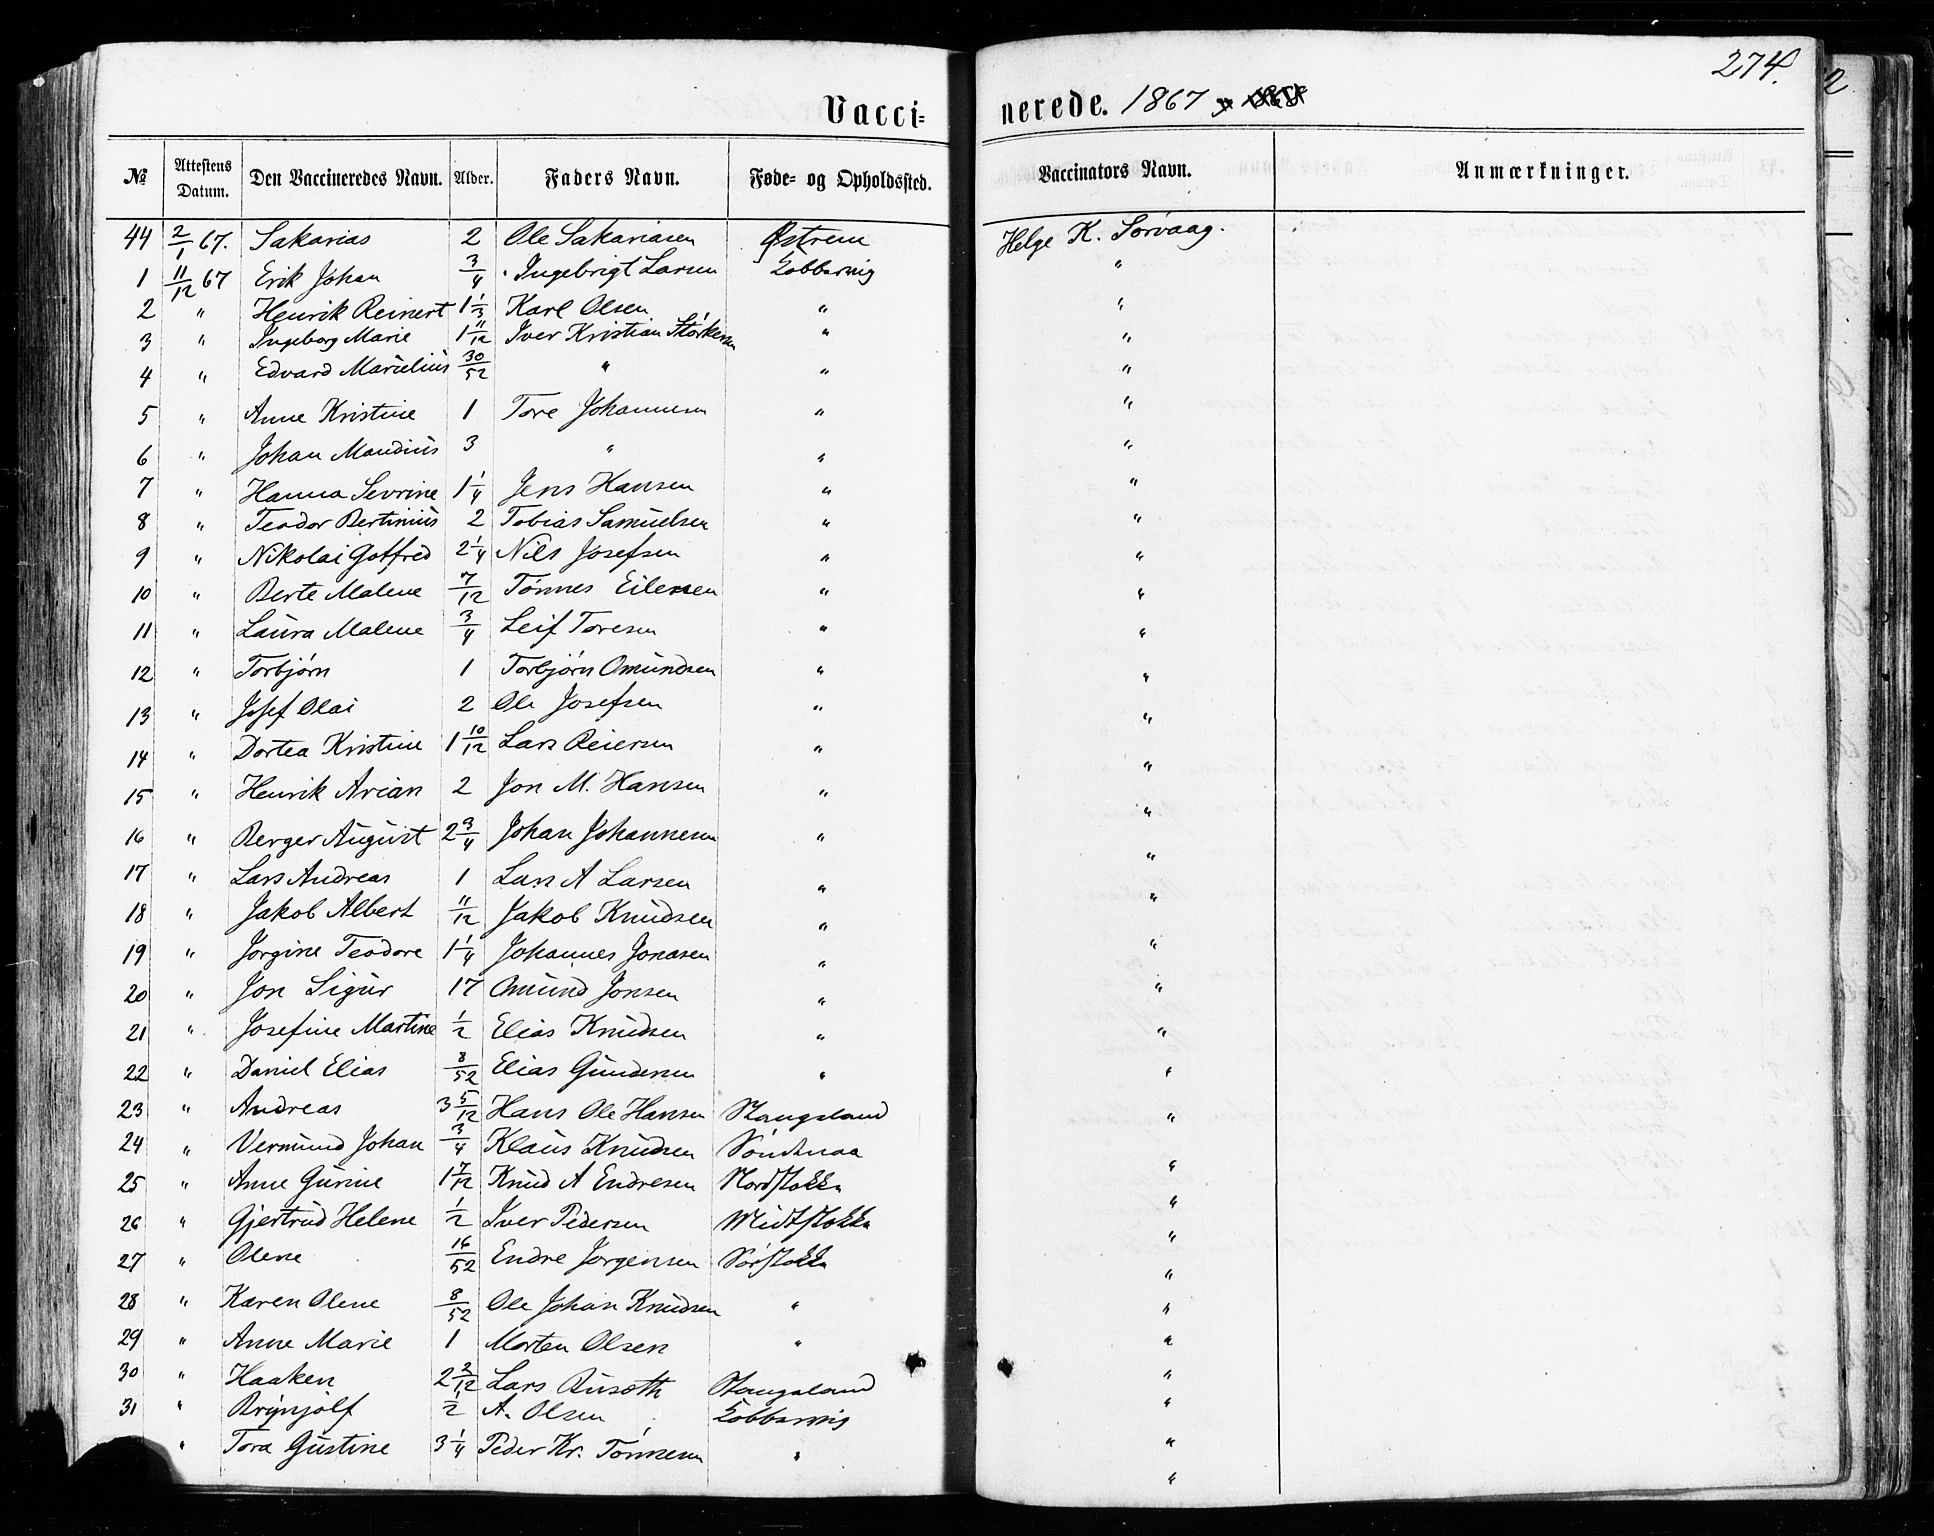 274.
2
Vacci= nerede. 1867
№ Attestens Datum. Den Vaccineredes Navn. Alder. Faders Navn. Føde- og Opholdssted. Vaccinators Navn. Anmærkninger.
44 2/1 67. Sakarias 2 Ole Sakariasen Østrem Helge K. Sørvaag.
1 11/12 67 Erik Johan 3/4 Ingebrigt Larsen Kobbervig "
2 " Henrik Reinert 1 1/3 Karl Olsen " "
3 " Ingeborg Marie 1 11/12 Iver Kristian Størkersen " "
4 " Edvard Marselius 30/52 " " "
5 " Anne Kristine 1 Tore Johannesen " "
6 " Johan Mandius 3 " " "
7 " Hanna Sevrine 1 1/4 Jens Hansen " "
8 " Teodor Bertinius 2 Tobias Samuelsen " "
9 " Nikolai Gotfred 2 1/4 Nils Josefsen " "
10 " Berte Malene 7/12 Tønnes Eilersen " "
11 " Laura Malene 3/4 Leif Toresen " "
12 " Torbjørn 1 Torbjørn Omundsen " "
13 " Josef Olai 2 Ole Josefsen " "
14 " Dortea Kristine 1 10/12 Lars Reiersen " "
15 " Henrik Arian 2 Jon M. Hansen " "
16 " Berger August 2 3/4 Johan Johannesen " "
17 " Lars Andreas 1 Lars A Larsen " "
18 " Jakob Albert 11/12 Jakob Knudsen " "
19 " Jorgine Teodore 1 1/4 Johannes Jonasen " "
20 " Jon Sigur 17 Omund Jonsen " "
21 " Josefine Martine 1/2 Elias Knudsen " "
22 " Daniel Elias 8/52 Elias Gundersen " "
23 " Andreas 3 5/12 Hans Ole Hansen Stangeland "
24 " Vermund Johan 3/4 Klaus Knudsen Søndenaa "
25 " Anne Gurine 1 7/12 Knud A Endresen Nordstokke "
26 " Gjertrud Helene 1/2 Iver Pedersen Midtstokke "
27 " Olene 16/52 Endre Jørgensen Sørstokke "
28 " Karen Olene 8/52 Ole Johan Knudsen " "
29 " Anne Marie 1 Morten Olsen " "
30 " Haaken 2 2/12 Lars Stangeland "
31 " Brynjolf 1/2 A. Olsen Kobbervig "
" Tora Gustine 3 1/4 Peder Kr. Tønnesen " "